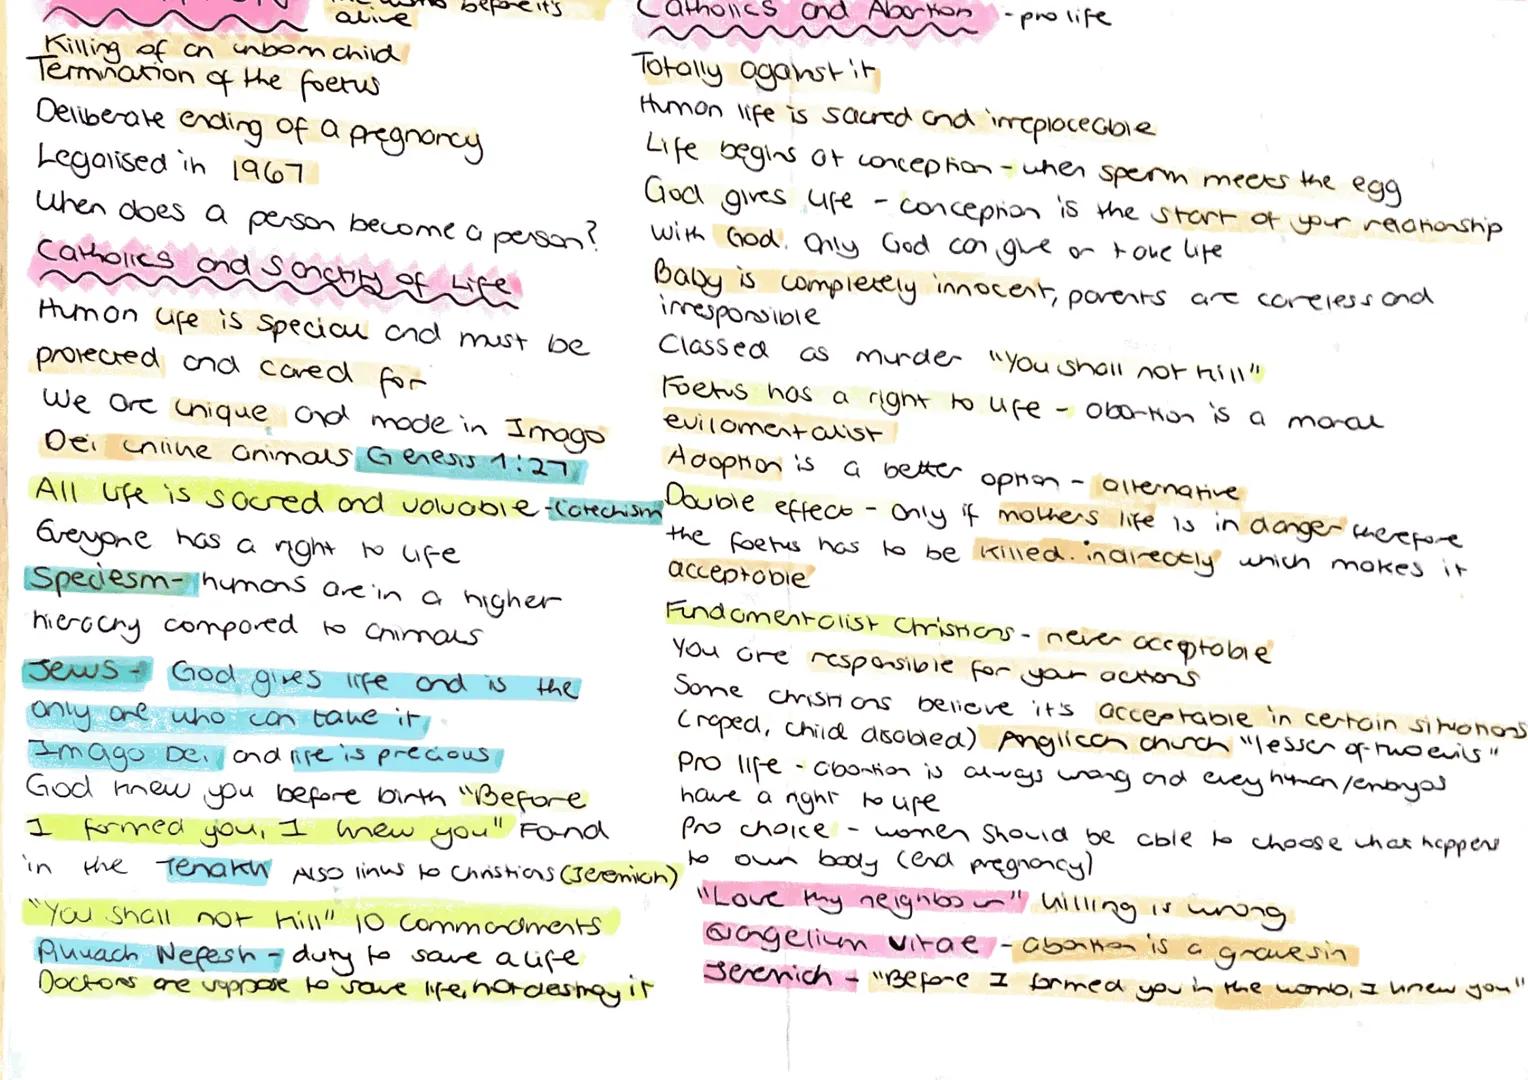 before it's
alive
Killing of an unborn child
Termination of the foetus
Deliberate ending of a pregnancy
Legalised in 1967
When does a person become a person?
Catholics and Sanctity of Life
Human life is special and must be
protected and cared for
We are unique and made in Imago
Dei unlike animals Genesis 1:27
All life is sacred and valuable - Catechism
Everyone has a right to life
Speciesm - humans are in a higher
hierachy compared to animals
Jews - God gives life and is the
only one who can take it
Imago Dei and life is precious
God knew you before birth "Before
I formed you, I knew you" Found
in the Tenakh Also links to Christians (Jeremiah)
"You shall not kill" 10 Commandments
Pikuach Nefesh - duty to save a life
Doctors are suppose to save life, not destroy it
Catholics and Abortion - pro life
Totally against it
Human life is sacred and irreplaceable
Life begins at conception - when sperm meets the egg
God gives life - conception is the start of your relationship
with God. Only God can give or take life
Baby is completely innocent, parents are careless and
irresponsible
Classed as murder "You shall not kill"
Foetus has a right to life - abortion is a moral
evil
Adoption is a better option - alternative
Double effect - only if mothers life is in danger therefore
the foetus has to be killed indirectly which makes it
acceptable
Fundamentalist Christians - never acceptable
You are responsible for your actions
Some christians believe it's acceptable in certain situations
(raped, child disabled) Anglican church "lesser of two evils"
Pro life - abortion is always wrong and every human/embryos
have a right to life
Pro choice - women should be able to choose what happens
to own body (end pregnancy)
"Love thy neighbour" killing is wrong
Evangelium vitae - abortion is a grave sin
Jeremiah - "Before I formed you in the womb, I knew you"